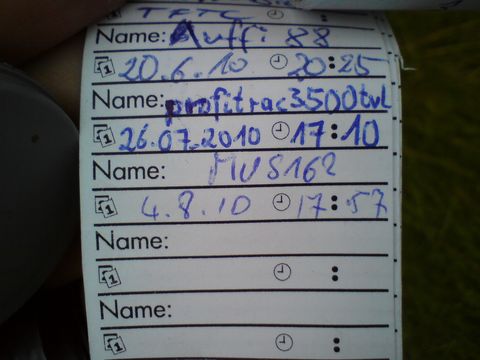 TFTC :
Name: Auffi 88
20.6.10 20:25
Name: profitrac3500tvl
26.07.2010 17:10
Name: MUS162
4.8.10 17:57
Name:
:
Name:
: